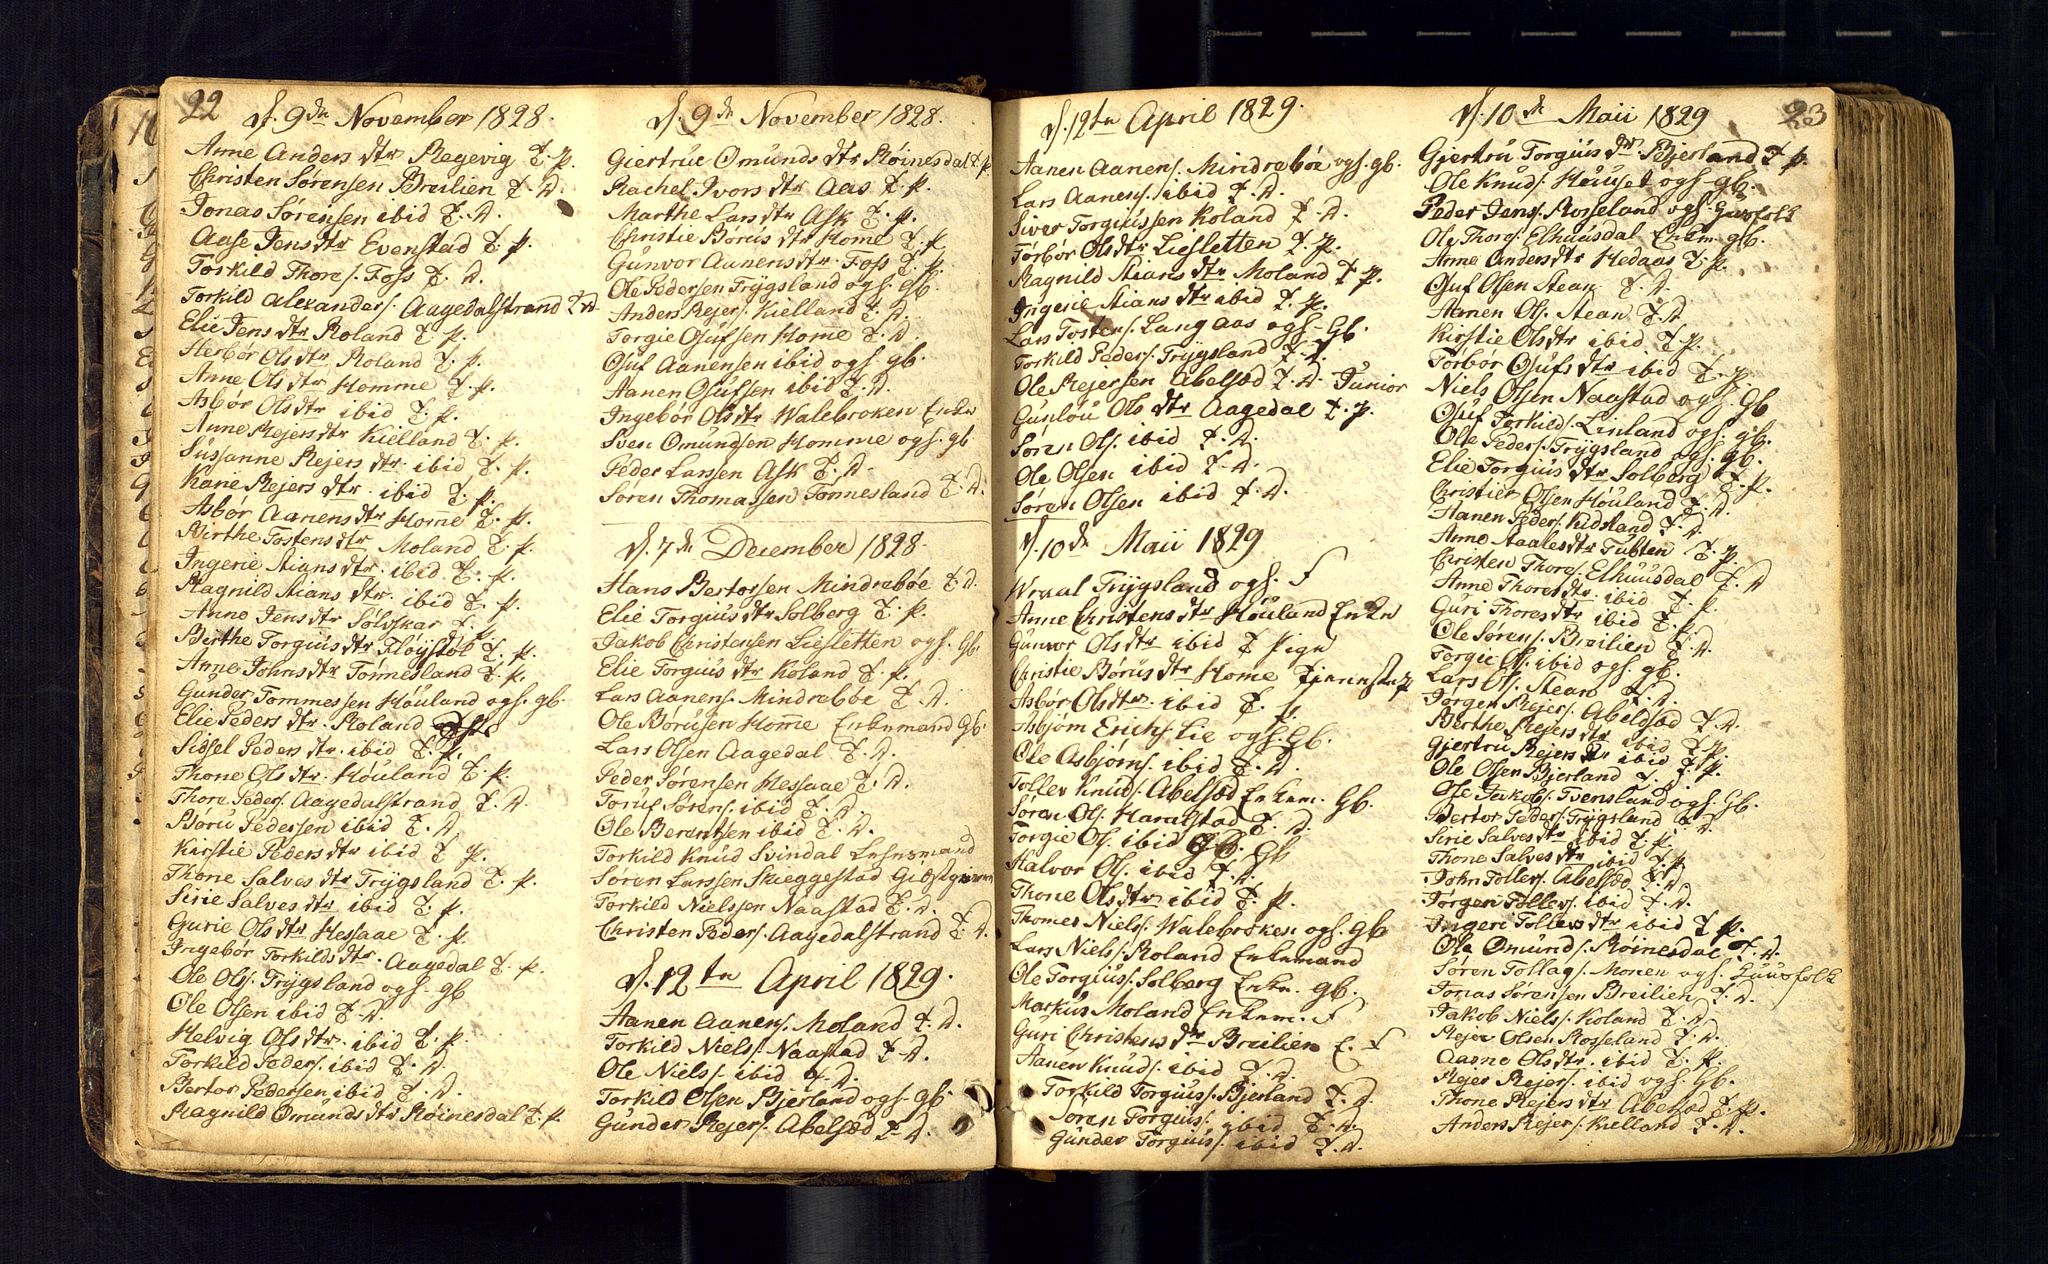 22
d. 9de November 1828.
Anne Anders dtr Regevig T. p.
Christen Sørensen Breilien T. D.
Jonas Sørensen ibid T. D.
Aase Jens dtr Evenstad T. p.
Torkild Thores. Foss T. D.
Torkild Alexanders. Aagedalstrand T. D.
Elie Jens dtr Roland T. p.
Herbør Ols dtr Roland T. p.
Anne Ols dtr Homme T. p.
Asbør Ols dtr ibid T. p.
Anne Rejers dtr Kielland T. p.
Sussanne Rejers dtr. ibid T. p.
Kane Rejers dtr. ibid T. p.
Asbør Aanens dtr Home T. p.
Birthe Tostens dtr Moland T. p.
Ingerie Stians dtr. ibid T. p.
Ragnild Stians dtr. ibid T. p.
Anne Jens dtr Sølvskar T.
Berthe Torgius dtr Fløystøl T. p.
Anne Johns dtr Tønnesland T. p.
Gunder Tommessen Høuland ogs. gb.
Elie Peders dtr. Roland
Sidsel Peders dtr. ibid T. p.
Thone Ols dtr. Høuland T. p.
Thore Peders. Aagedalstrand T. D.
Børu Pedersen ibid T. D.
Kirstie Peders dtr ibid T p.
Thone Salves dtr Trÿgsland T. p.
Sirie Salves dtr ibid T. p.
Gurie Ols dtr Hessaae T. p.
Ingebør Torkilds dtr. Aagedal T. p.
Ole Ols. Trÿgsland ogs. gb
Ole Olsen ibid T. D.
Helvig Ols dtr. ibid T. p.
Torkild Peders. ibid T. D.
Bertor Pedersen ibid T. D.
Ragnild Omunds dtr Røinesdal T. p
d. 9de November 1828.
Giertrue Omunds dtr Røinesdal T. p
Rachel Ivors dtr Aas T. p.
Marthe Lars dtr Ask T. p.
Christie Børus dtr Home T. p
Gunvor Aanens dtr. Foss T. p.
Ole Pedersen Trÿgsland ogs. gb.
Anders Rejers. Kielland T. D.
Torgie Osufsen Home T. D
Osuf Aanensen ibid ogs. gb.
Aanen Osufsen ibid T. D.
Ingebør Ols dtr Walebroken Enke
Sven Omundsen Homme ogs. gb
Peder Larssen Ask T. D.
Søren Thomassen Tønnesland T. D.
d. 7de December 1828.
Hans Bertorsen Mindrebøe T. D.
Elie Torgius dtr Solberg T. p.
Jakob Christensen Liesletten ogs. Gb.
Elie Torgius dtr Koland T. p.
Lars Aanens. Mindrebøe T. D.
Ole Børusen Home Enkemand Gb.
Lars Olsen Aagedal T. D.
Peder Sørensen Hessaae T. D.
Toruf Sørens. ibid T. D.
Ole Berentsen ibid T. D.
Torkild Knud Svindal Lehnsmand
Søren Larssen Skieggestad
Torkild Nielssen Naastad T. D.
Christen Peders. Aagedalstrand T. D.
d. 12te April 1829.
Aanen Aanens. Moland T. D.
Torkild Niels. Naastad T. D.
Ole Niels. ibid T. D.
Torkild Olsen Bjerland ogs. gb.
Gunder Rejers. Abelsød T. D.
d. 12te April 1829.
Aanen Aanens. Mindrebøe ogs. gb.
Lars Aanens. ibid T. D.
Siver Torgiussen Koland T. D.
Torbør Ols dtr Liesletten T. p.
Ragnild Stians dtr Moland T. p.
Ingerie Stians dtr ibid T. p.
Lars Tostens. Lang Aas ogs. Gb
Torkild Peders. Trÿgsland T. D.
Ole Rejersen Abelsød T. D. Junior
Gunlou Ols dtr Aagedal T. p.
Søren Ols. ibid T. D.
Ole Olsen ibid T. D.
Søren Olsen ibid T. D.
d. 10de Maii 1829
Wraal Trÿgsland ogs. F
Anne Christens dtr Høuland Enke
Gunvor Ols dtr ibid T Pige
Christie Børus dtr Home
Asbør Ols dtr. ibid T. p.
Asbjøm Erichs. Lie ogs. Gb.
Ole Asbjørns. ibid T. D.
Tollev Knuds. Abelsød Enkem. Gb.
Søren Ols. Haralstad T. D.
Torgie Ols. ibid Gb
Halvor Ols. ibid T. D.
Thone Ols dtr ibid T. p.
Thomes Niels. Walebroken ogs. gb
Lars Niels. Roland Enkemand
Ole Torgius. Solberg Enke. gb.
Markus Moland Enkem. F
Guri Christens dtr Breilien E. F
Aanen Knuds. ibid T. D.
Torkild Torgius. Bjerland T. D.
Søren Torgius. ibid T. D.
Gunder Torgius. ibid T. D.
d. 10de Maii 1829
23
Gjertru Torgius dtr. Bjerland T. p.
Ole Knuds. Høuset ogs. gb.
Peder Jens. Rosseland ogs. Huusfolk
Ole Thores. Elhuusdal Enkm. gb.
Anne Anders dtr Hedaas T. p.
Osuf Olsen Stean T. D.
Aanen Ols. Stean T. D
Kirstie Ols dtr ibid T. p.
Torbør Osufs dtr ibid T. p.
Niels Olsen Naastad ogs. Gb
Osuf Torkilds. Linland ogs. gb.
Ole Peders. Trÿgsland ogs. gb.
Elie Torgius dtr Solberg T. p.
Christen Olsen Høuland T. D.
Aanen Peders. Kidsland T. D
Anne Staales dtr Tubten T. p.
Christen Thores. Elhuusdal T. D
Anne Thores dtr ibid T. p.
Guri Thores dtr ibid T. p.
Ole Sørens. Breilien T. D.
Torgie Ols. ibid ogs. gb.
Lars Ols. Stean T. D.
Jørgen Rejers. Abelsød T. D.
Berthe Rejers dtr ibid T. p.
Gjertru Rejers dtr ibid T. p.
Ole Olsen Bjerland T. D.
Ole Jakobs. Tvensland ogs. Gb.
Bertor Peders. Trÿgsland T. D.
Sirie Salves dtr ibid T. p.
Thone Salves dtr ibid T. p
John Tollevs. Abelsød T. D.
Jørgen Tollevs. ibid T. D.
Ingeri Tollevs dtr ibid T. p.
Ole Omunds. Røinesdal T. D.
Søren Tollags. Monen ogs. Huusfolk
Jonas Sørensen Breilien T. D.
Jakob Niels. Koland T. D.
Rejer Olsen Rosseland T. D.
Aasne Ols dtr. ibid T. p.
Rejer Rejers. ibid ogs. Gb.
Thone Rejers dtr Abelsød T. p.
Anders Rejers. Kielland T. D.